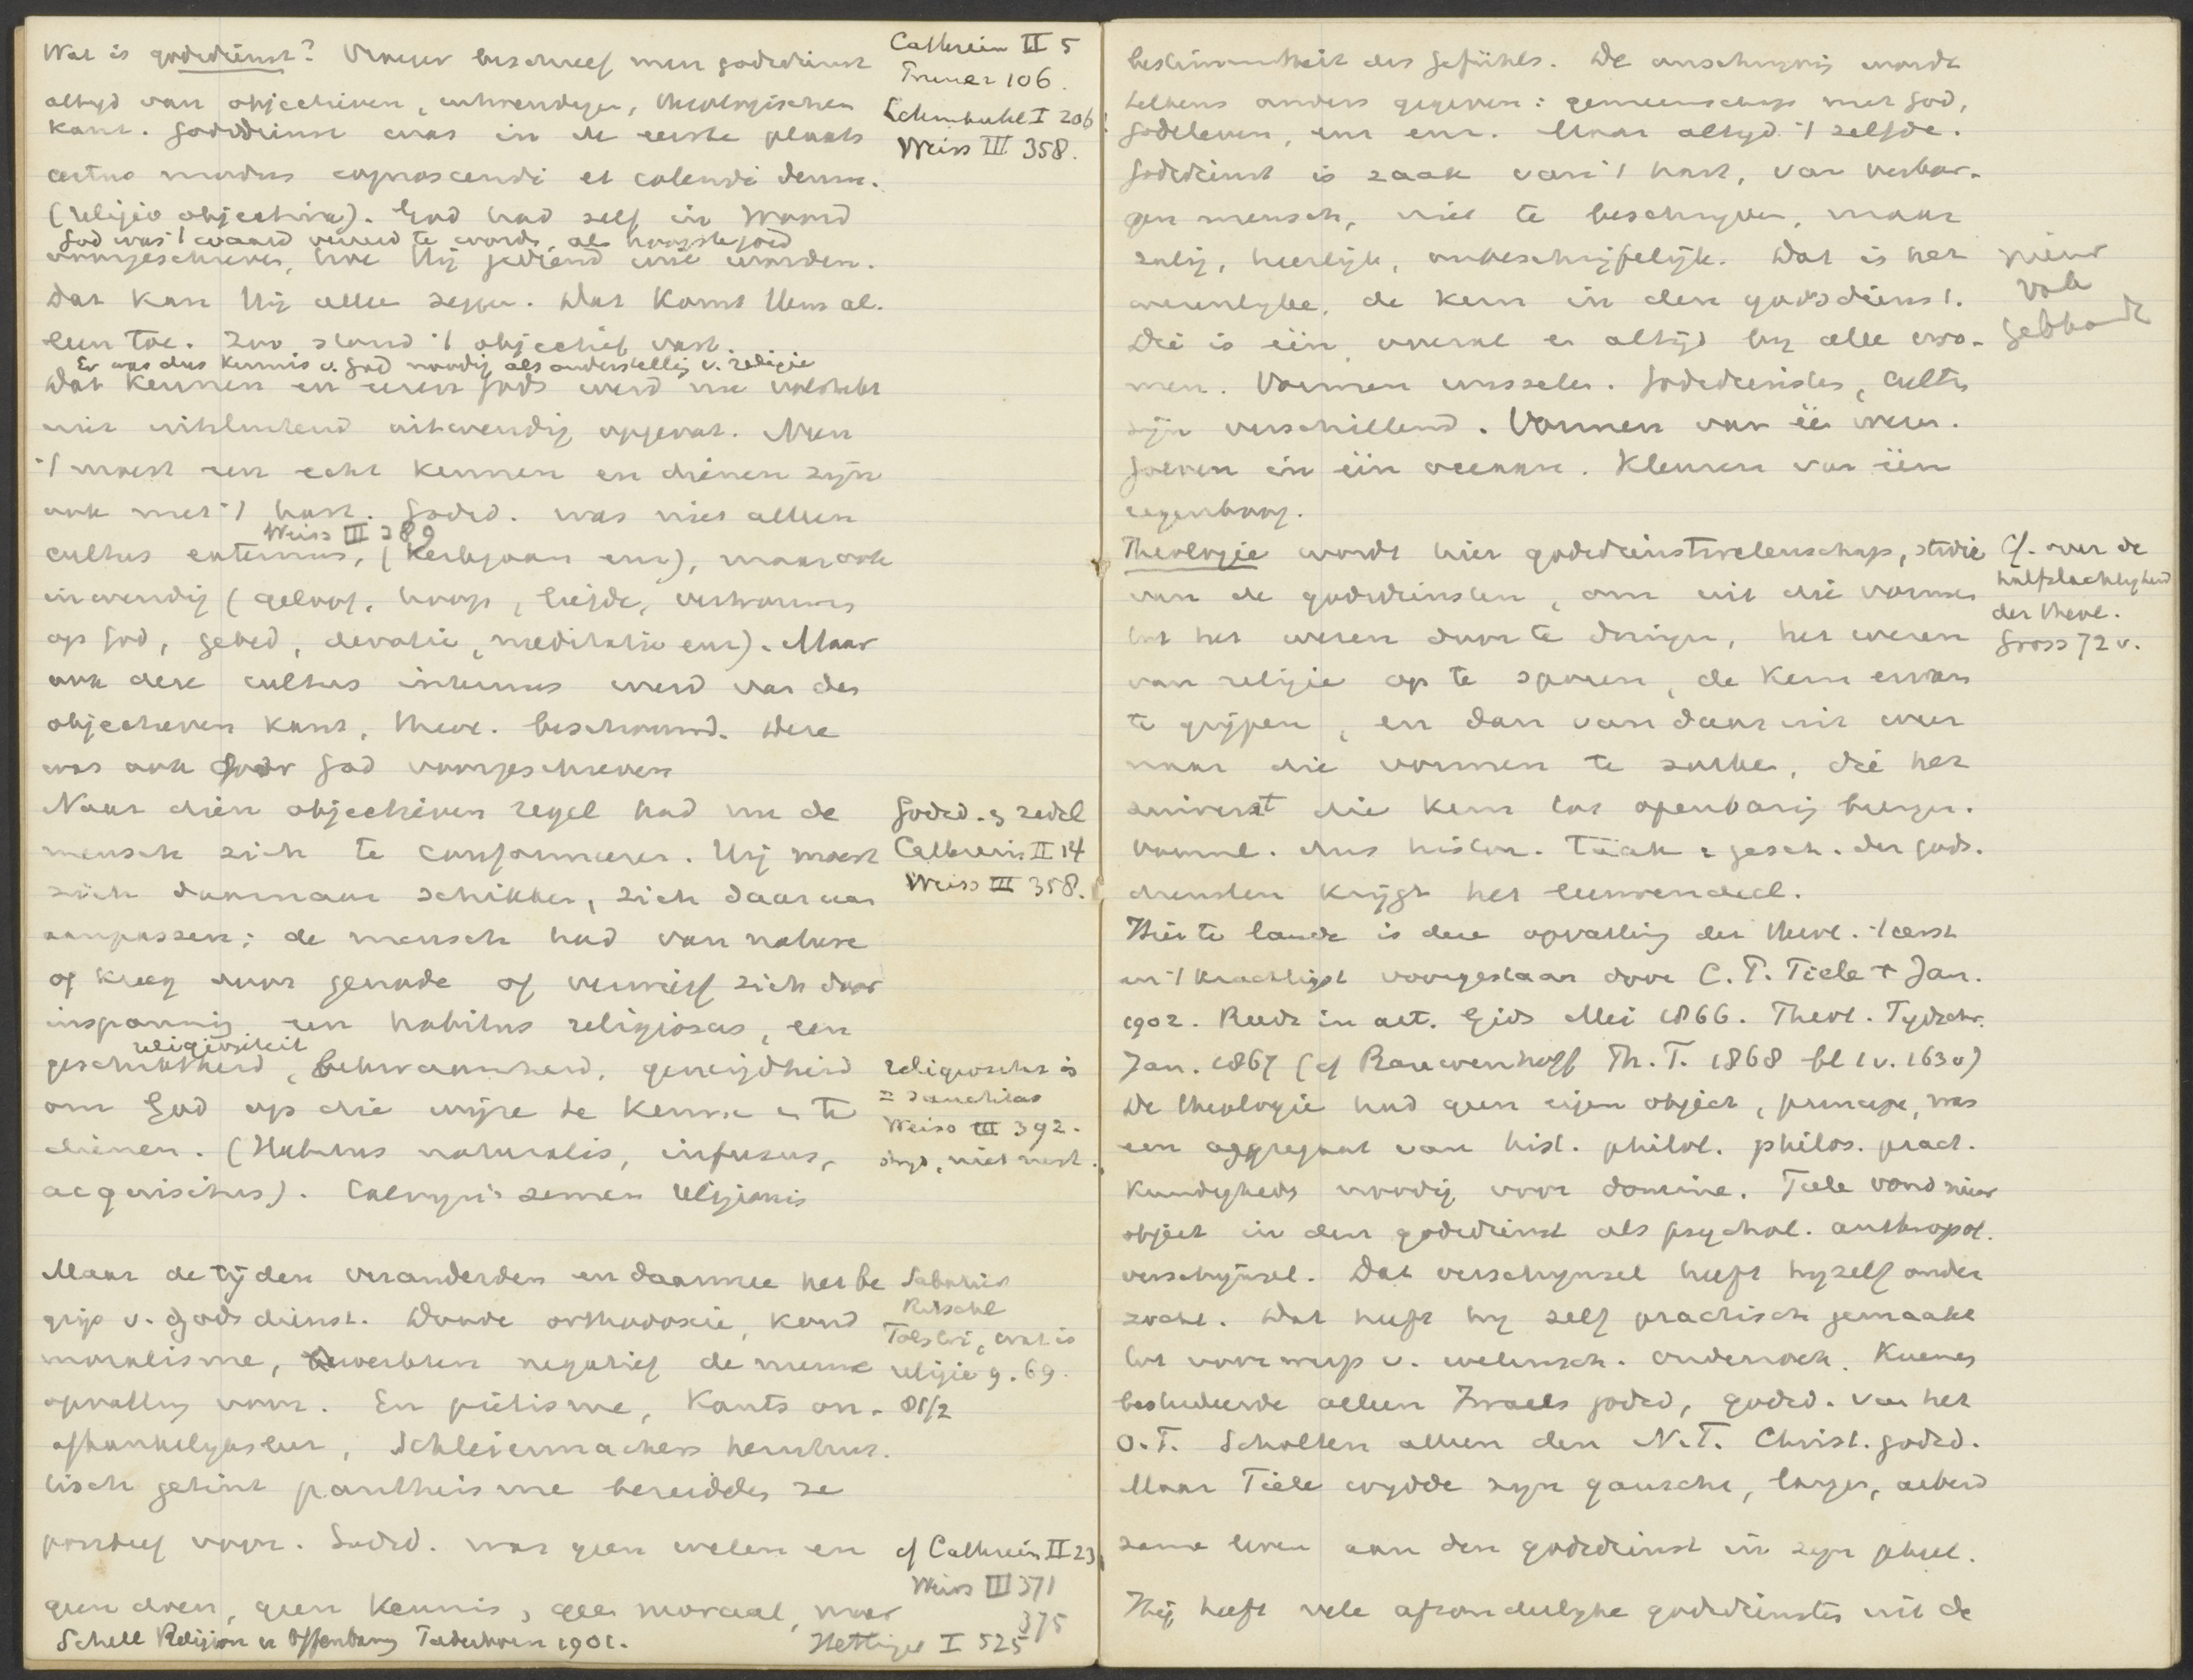 Wat is godsdienst? Vroeger beschreef men godsdienst
altyd van objectieven, uitwendigen, theologischen
kant. Godsdienst was in de eerste plaats
certus modus cognoscendi et colendi deum.
(religio objectiva). God had zelf in Woord
God was 't waard vereerd te worden, als hoogste goed
voorgeschreven, hoe Hij gediend wil worden.
Dat kan Hij alleen zeggen. Dat komt Hem al-
leen toe. Zoo stond 't objectief vast.
Er was dus kennis v. God noodig als onderstelling v. religie
Dat kennen en eeren Gods werd nu volstrekt
niet uitsluitend uitwendig opgevat. Neen
't moest een echt kennen en dienen zijn
ook met 't hart. Godsd. was niet alleen
Weiss III 389
cultus externus, (kerkgaan enz), maar ook
inwendig (geloof, hoop, liefde, vertrouwen
op God, gebed, devotie, meditatie enz). Maar
ook deze cultus internus werd van den
objectieven kant, theol. beschouwd. Deze
was ook door God voorgeschreven
Naar dien objectieven regel had nu de
mensch zich te conformeeren. Hij moest
zich daarnaar schikken, zich daaraan
aanpassen; de mensch had van nature
of kreeg door genade of verwierf zich door
inspanning een habitus religiosus, een
religiositeit
geschiktheid, bekwaamheid, geneigdheid
om God op die wijze te kennen en te
dienen. (Habitus naturalis, infusus,
acquisitus). Calvyn's semen religionis
Maar de tijden veranderden en daarmee het be
grip v. godsdienst. Doode orthodoxie, koud
moralisme, bewerkten negatief de nieuwe
opvatting voor. En piëtisme, Kants on-
afhankelyksleer, Schleiermachers hernhut-
tisch getint pantheisme bereidden ze
positief voor. Godsd. was geen weten en
geen doen, geen kennis, geen moraal, maar
Schell Religion u Offenbarung Paderborn 1901.
Cathrein II 5
106
Lehmkuhl I 206
Weiss III 358.
Godsd. en zedel
Cathrein II 14
Weiss III 358.
religiositas is
= sanctitas
Weiss III 392.
Sabatier
Ritschl
Tolstoi, wat is
religie 9. 69.
81/2
cf Cathrein II 23
Weiss III 371
375
Hettinger I 525
bestimmtheit des Gefühls. De omschryving wordt
telkens anders gegeven: gemeenschap met God,
Godsleven, enz enz. Maar altyd 't zelfde.
Godsdienst is zaak van 't hart, van verbor-
gen mensch, niet te beschryven, maar
zalig, heerlyk, onbeschrijfelijk. Dat is het
wezenlyke, de kern in den godsdienst.
Die is één, overal en altijd by alle vro-
men. Vormen wisselen. Godsdiensten, cultus
zijn verschillend. Vormen van één wezen.
Golven in één oceaan. Kleuren van één
regenboog.
Theologie wordt hier godsdienstwetenschap, studie
van de godsdiensten, om uit die vormen
tot het wezen door te dringen, het wezen
van religie op te sporen, de kern ervan
te grijpen, en dan van daar uit weer
naar die vormen te zoeken, die het
zuiverst die kern tot openbaring brengen.
Voornl. dus histor. taak & gesch. der gods-
diensten krijgt het leeuwendeel.
Hier te lande is deze opvatting der theol. 't eerst
en 't krachtigst voorgestaan door C. P. Tiele † Jan.
1902. Reeds in art. Gids Mei 1866. Theol. Tydschr.
Jan. 1867 (cf Rauwenhoff Th. T. 1868 bl 1 v. 163 v)
De theologie had geen eigen object, principe, was
een aggregaat van hist. philol. philos. pract.
kundigheds noodig voor domine. Tiele vond nieuw
object in den godsdienst als psychol. anthropol.
verschynsel. Dat verschynsel heeft hyzelf onder
zocht. Dat heeft hy zelf practisch gemaakt
tot voorwerp v. wetensch. onderzoek. Kuenen
bestudeerde alleen Israels godsd, godsd. van het
O.T. Scholten alleen den N.T. Christ. godsd.
Maar Tiele wydde zyn gansche, lange, arbeid
zame leven aan den godsdienst in zyn geheel.
Hij heeft vele afzonderlyke godsdiensten uit de
Cf. over de
halfslachtigheid
der theol.
Gross 72 v.